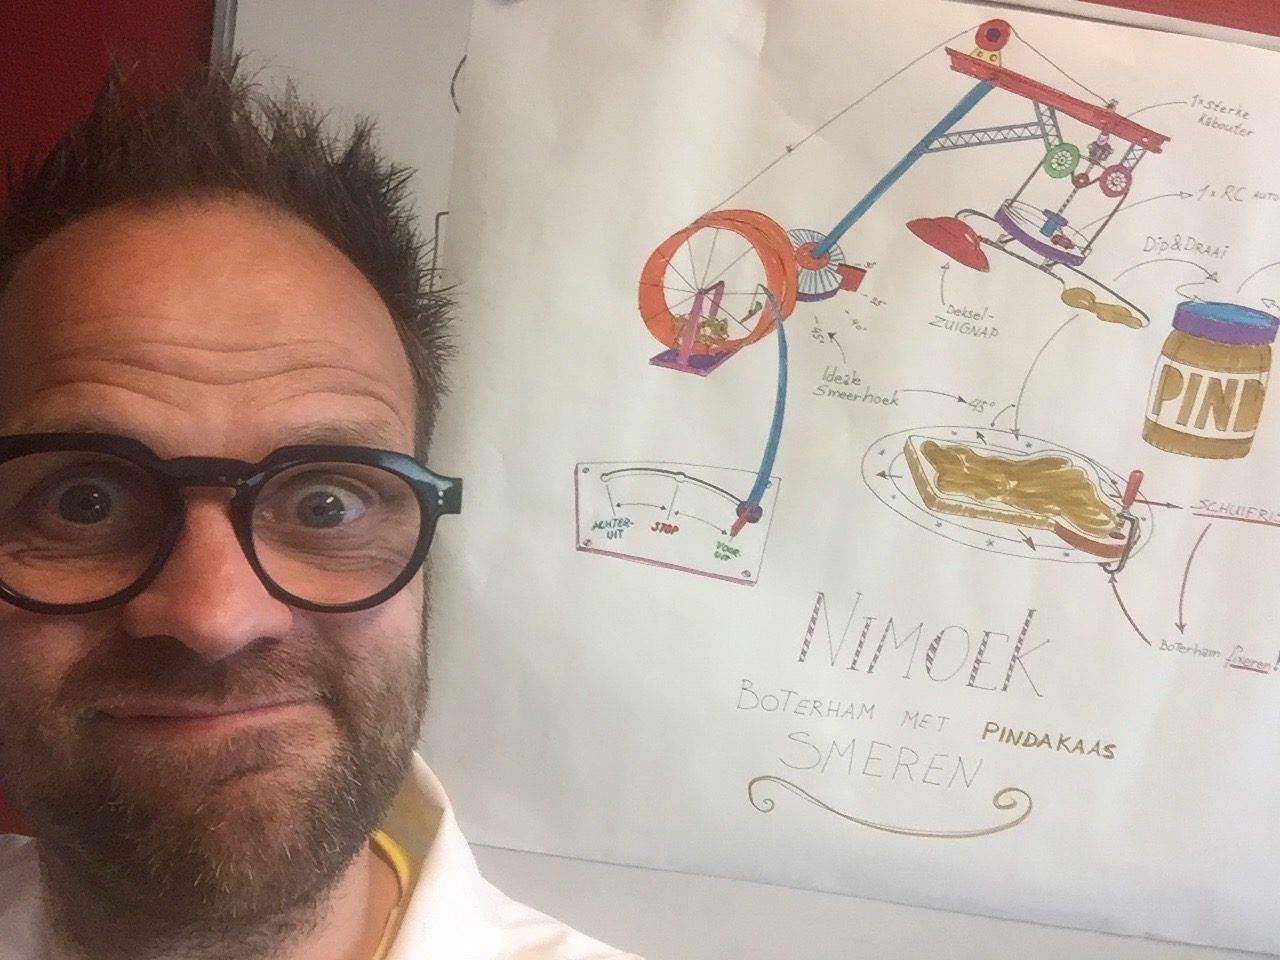 1× sterke
Kabouter
1× RC AUTO
Dip&DRAAi
Deksel-
ZUIGNAP
Ideale
Smeerhoek
45°
PIND
ACHTER-
UIT
STOP
VOOR-
UIT
SCHUIFR
Boterham fixeren!
NIMOEK
BOTERHAM MET PINDAKAAS
SMEREN